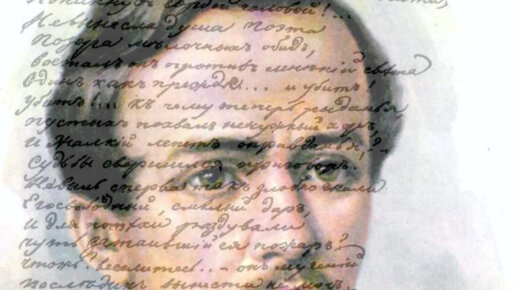 Поникнувъ гордой головой!...
Невынесла душа поэта
Позора мелочныхъ обидъ,
Возсталъ онъ противъ мнѣній свѣта
Одинъ какъ прежде... и убитъ!
Убитъ... къ чему теперь рыданья,
Пустыхъ похвалъ ненужный хоръ,
И жалкій лепетъ оправданья,
Судьбы свершился приговоръ.
Невыль сперва такъ злобно гнали
Его свободный, смѣлый даръ,
И для потѣхи раздували
Чуть затаившійся пожаръ?
Чтожъ? веселитесь.. - онъ мученій
Послѣднихъ вынести не могъ,